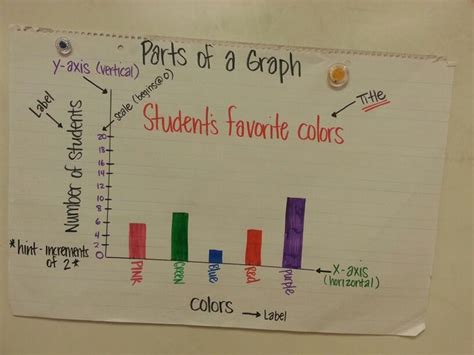 Parts of a Graph
Y-axis (vertical)
Label
scale (begins@0)
Title
Student's favorite colors
Number of Students
20
18
16
14
12
10
8
6
4
2
0
*hint-increments
of 2*
Pink
Green
Blue
Red
Purple
X-axis
(horizontal)
Colors
Label